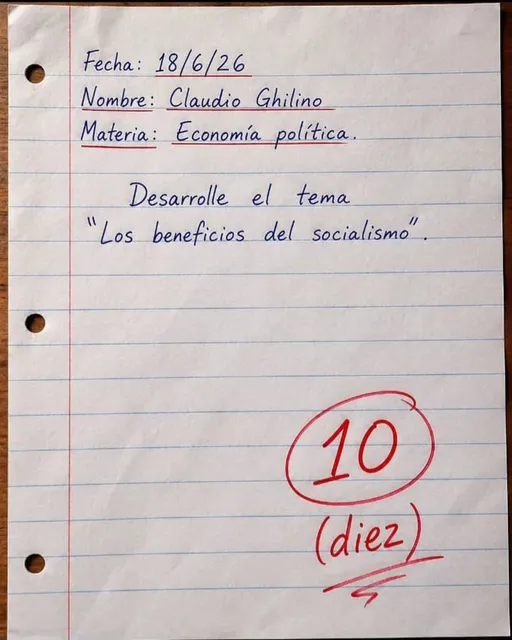 Fecha: 18/6/26
Nombre: Claudio Ghilino
Materia: Economía política.
Desarrolle el tema
"Los beneficios del socialismo".
10
(diez)